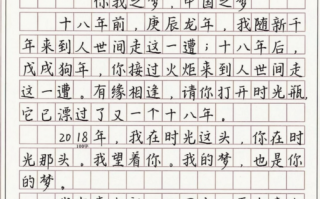 你我之梦，中国之梦
十八年前，庚辰龙年，我随新千
年来到人世间走这一遭；十八年后，
戊戌狗年，你接过火炬来到人世间走
这一遭。有缘相逢，请你打开时光瓶，
它已漂过了又一个十八年。
2018年，我在时光这头，你在时
光那头。我望着你。我的梦，也是你
的梦。